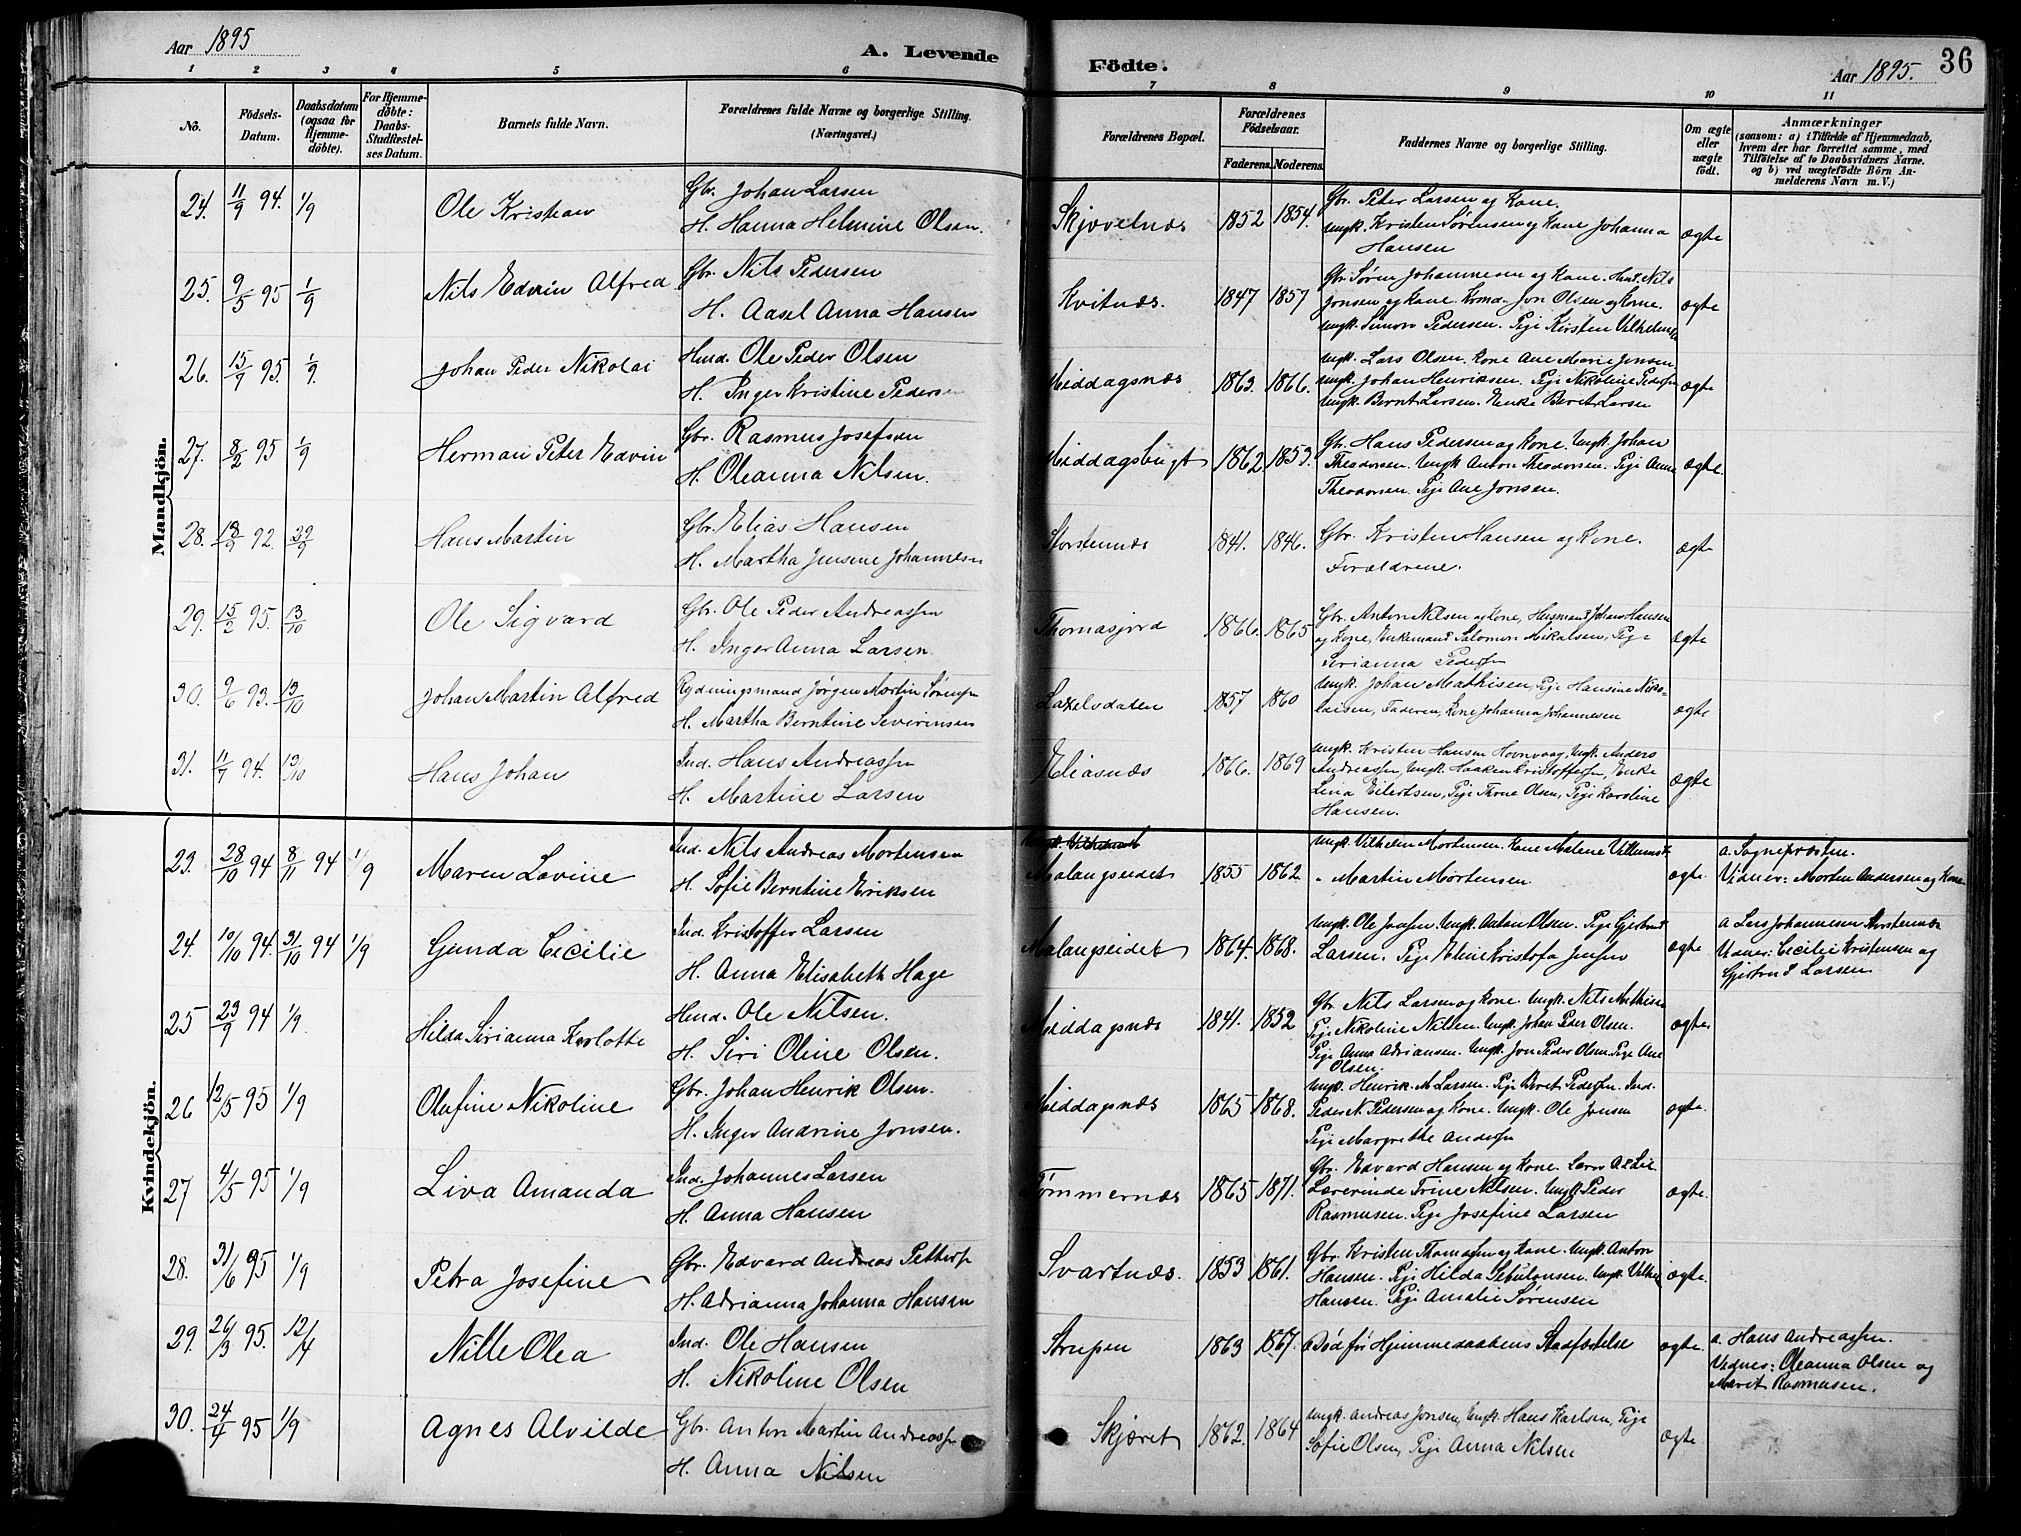 Aar 1895
A. Levende
Födte.
Aar 1895.
36
1 2 3 4 5 6 7 8 9 10 11
No.
Födsels-Datum.
Daabsdatum (ogsaa for Hjemmedöbte).
For Hjemmedöbte: Daabs-Stadfæstelses Datum.
Barnets fulde Navn.
Forældrenes fulde Navne og borgerlige Stilling. (Næringsvei.)
Forældrenes Bopæl.
Forældrenes Födselsaar.
Faderens. Moderens.
Faddernes Navne og borgerlige Stilling.
Om ægte eller uægte födt.
Anmærkninger
(saasom: a) i Tilfælde af Hjemmedaab,
hvem der har forrettet samme, med
Tilföielse af to Daabsvidners Navne.
og b) ved uægtefödte Börn Anmelderens Navn m. V.)
Mandkjön.
24. 11/9 94. 1/9 Ole Kristian
Gbr. Johan Larsen
H. Hanna Helmine Olsen.
Skjævelnæs 1852 1854.
Gbr. Peter Larsen og Kone.
Ungk. Kristen Sørensen og Kone Johanna
Hansen
ægte
25. 9/5 95 1/9 Nils Edvin Alfred
Gbr. Nils Pedersen
H. Aasel Anna Hansen
Kvitnæs. 1847 1857
Gbr. Søren Johannesen og Kone. Hmd. Nils
Jonsen og Kone. Kmd. Jon Olsen og Kone.
Ungk. Simon Pedersen. Pige Kirsten Vilhelms
ægte
26. 15/9 95. 1/9. Johan Peder Nikolai
Hmd. Ole Peder Olsen
H. Inger Kristine Pedersen
Middagsnæs 1863. 1866.
Ungk. Lars Olsen. Kone Ane Marie Jensen
Ungk. Johan Henriksen. Pige Nikoline Peders
Ungk. Bernt Larsen. Enke Beret Larsen
ægte
27. 8/2 95 1/9 Herman Peter Edvin
Gbr. Rasmus Josefsen
H. Oleanna Nilsen.
Middagsbugt 1862 1853.
Gbr. Hans Pedersen og Kone. Ungk. Johan
Theodorsen. Ungk Anton Theodorsen. Pige Anna
Theodorsen. Pige Ane Jonsen.
ægte.
28. 18/9 92. 29/9 Hans Martin
Gbr. Elias Hansen
H. Martha Jensine Johannesen
Storstennæs 1841. 1846.
Gbr. Kristen Hansen og Kone.
Forældrene.
ægte
29. 15/2 95. 13/10 Ole Sigvard
Gbr. Ole Peder Andreassen
H. Inger Anna Larsen
Thomasjord 1866. 1865
Gbr. Anton Nilsen og Kone, Husmand Johan Hansen
og Kone, Enkemand Salomon Mikalsen, Pige
Sirianna Pedersen
ægte
30. 9/6 93. 13/10 Johan Martin Alfred
Rydningsmand Jørgen Martin Sørensen
H. Martha Berntine Severinsen
Laxelvdalen 1857 1860
Ungk. Johan Mathisen, Pige Hansine Niko-
laisen, Faderen, Kone Johanna Johannesen
ægte
31. 11/7 94. 13/10 Hans Johan
Ind. Hans Andreassen
H. Martine Larsen
Eliasnæs 1866. 1869
Ungk. Kristen Hansen Hovnvaag, Ungk. Anders
Andreassen, Ungk. Haaken Kristoffersen, Enke
Lina Eilertsen, Pige Thrine Olsen, Pige Karoline
Hansen.
ægte
Kvindekjön.
23. 28/10 94 8/11 94 1/9 Maren Lovine
Ind. Nils Andreas Mortensen
H. Sofie Berntine Eriksen
Malangseidet 1855 1862
Ungk. Vilhelm Mortensen. Kone Malene Villumst
" Martin Mortensen
ægte.
a. Sognepræsten.
Vidner: Morten Andersen og Kone
24. 10/10 94. 31/10 94 1/9 Gunda Cecilie
Ind. Kristoffer Larsen
H. Anna Elisabeth Hage
Malangseidet 1864. 1868.
Ungk. Ole Jensen. Ungk. Anton Olsen. Pige Gjertrud
Larsen. Pige Eline Kristofa Jensen
ægte
a Lars Johannesen Storstennæs
Vidner: Cecilie Kristensen og
Gjertrud Larsen.
25 23/9 94 1/9. Hilda Sirianna Karlotte
Hmd. Ole Nilsen.
H. Siri Oline Olsen.
Middagsnæs 1841. 1852
Gbr. Nils Larsen og Kone. Ungk. Nils Mathisen
Pige Nikoline Nilsen. Ungk. Johan Peder Olsen.
Pige Anna Adriansen. Ungk. Jon Peder Olsen. Pige Ane
Olsen.
ægte
26 12/5 95 1/9 Olufine Nikoline
Gbr. Johan Henrik Olsen.
H. Inger Andrine Jonsen.
Middagsnæs 1865 1868.
Ungk. Henrik M Larsen. Pige Beret Pedersen. Ind.
Peder N Pedersen og Kone. Ungk. Ole Jonsen
Pige Margrethe Andersen
ægte.
27 4/5 95 1/9 Liva Amanda
Ind. Johannes Larsen
H. Anna Hansen
Tømmernæs 1865 1871.
Gbr. Edvard Hansen og Kone. Lars A. Lie.
Lærerinde Trine Nilsen. Ungk. Peder
Rasmussen. Pige Josefine Larsen
ægte.
28. 31/6 95 1/9 Petra Josefine
Gbr. Edvard Andreas Pettersen
H. Adrianna Johanna Hansen
Svartnæs. 1853 1861.
Gbr. Kristen Thomassen og Kone. Ungk. Anton
Hansen. Pige Hilda Sebulonsen. Ungk. Vilhelm
Hansen. Pige Amalie Sørensen
ægte.
29. 26/3 95. 12/4 Nille Olea
Ind. Ole Hansen
H. Nikoline Olsen
Strupen 1863 1867.
Død før Hjemmedaabens Stadfæstelse
ægte.
a. Hans Andreassen.
Vidnes: Oleanna Olsen og
Maret Rasmussen.
30. 24/4 95 1/9 Agnes Alvilde
Gbr. Anton Martin Andreassen
H. Anna Nilsen
Skjæret 1862. 1864
Ungk. Andreas Jonsen, Ungk. Hans Karlsen, Pige
Sofie Olsen, Pige Anna Nilsen
ægte